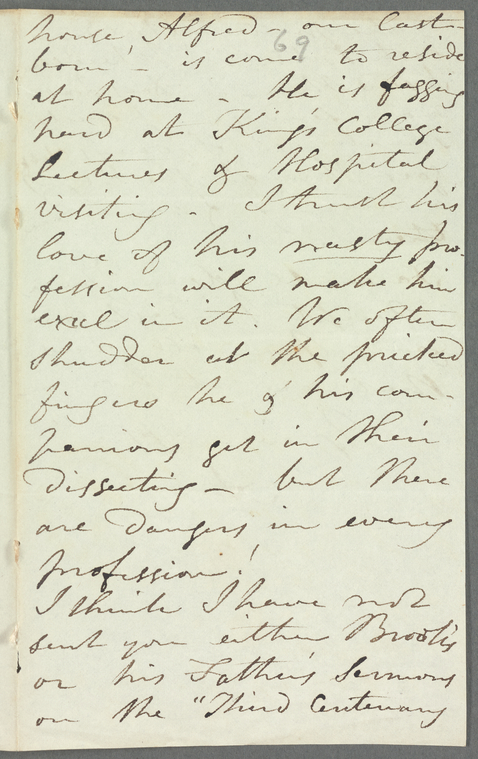 house Alfred - our last
69
born' - is come to reside
at home - He is fagging
hard at King's College
Lectures & Hospital
visiting - I trust his
love of his nasty pro-
fession will make him
excel in it. We often
shudder at the pricked
fingers he & his com-
panions get in their
dissecting - but there
are dangers in every
profession!
I think I have not
sent you either Brook's
or his Father's Sermons
on the "Third Centenary